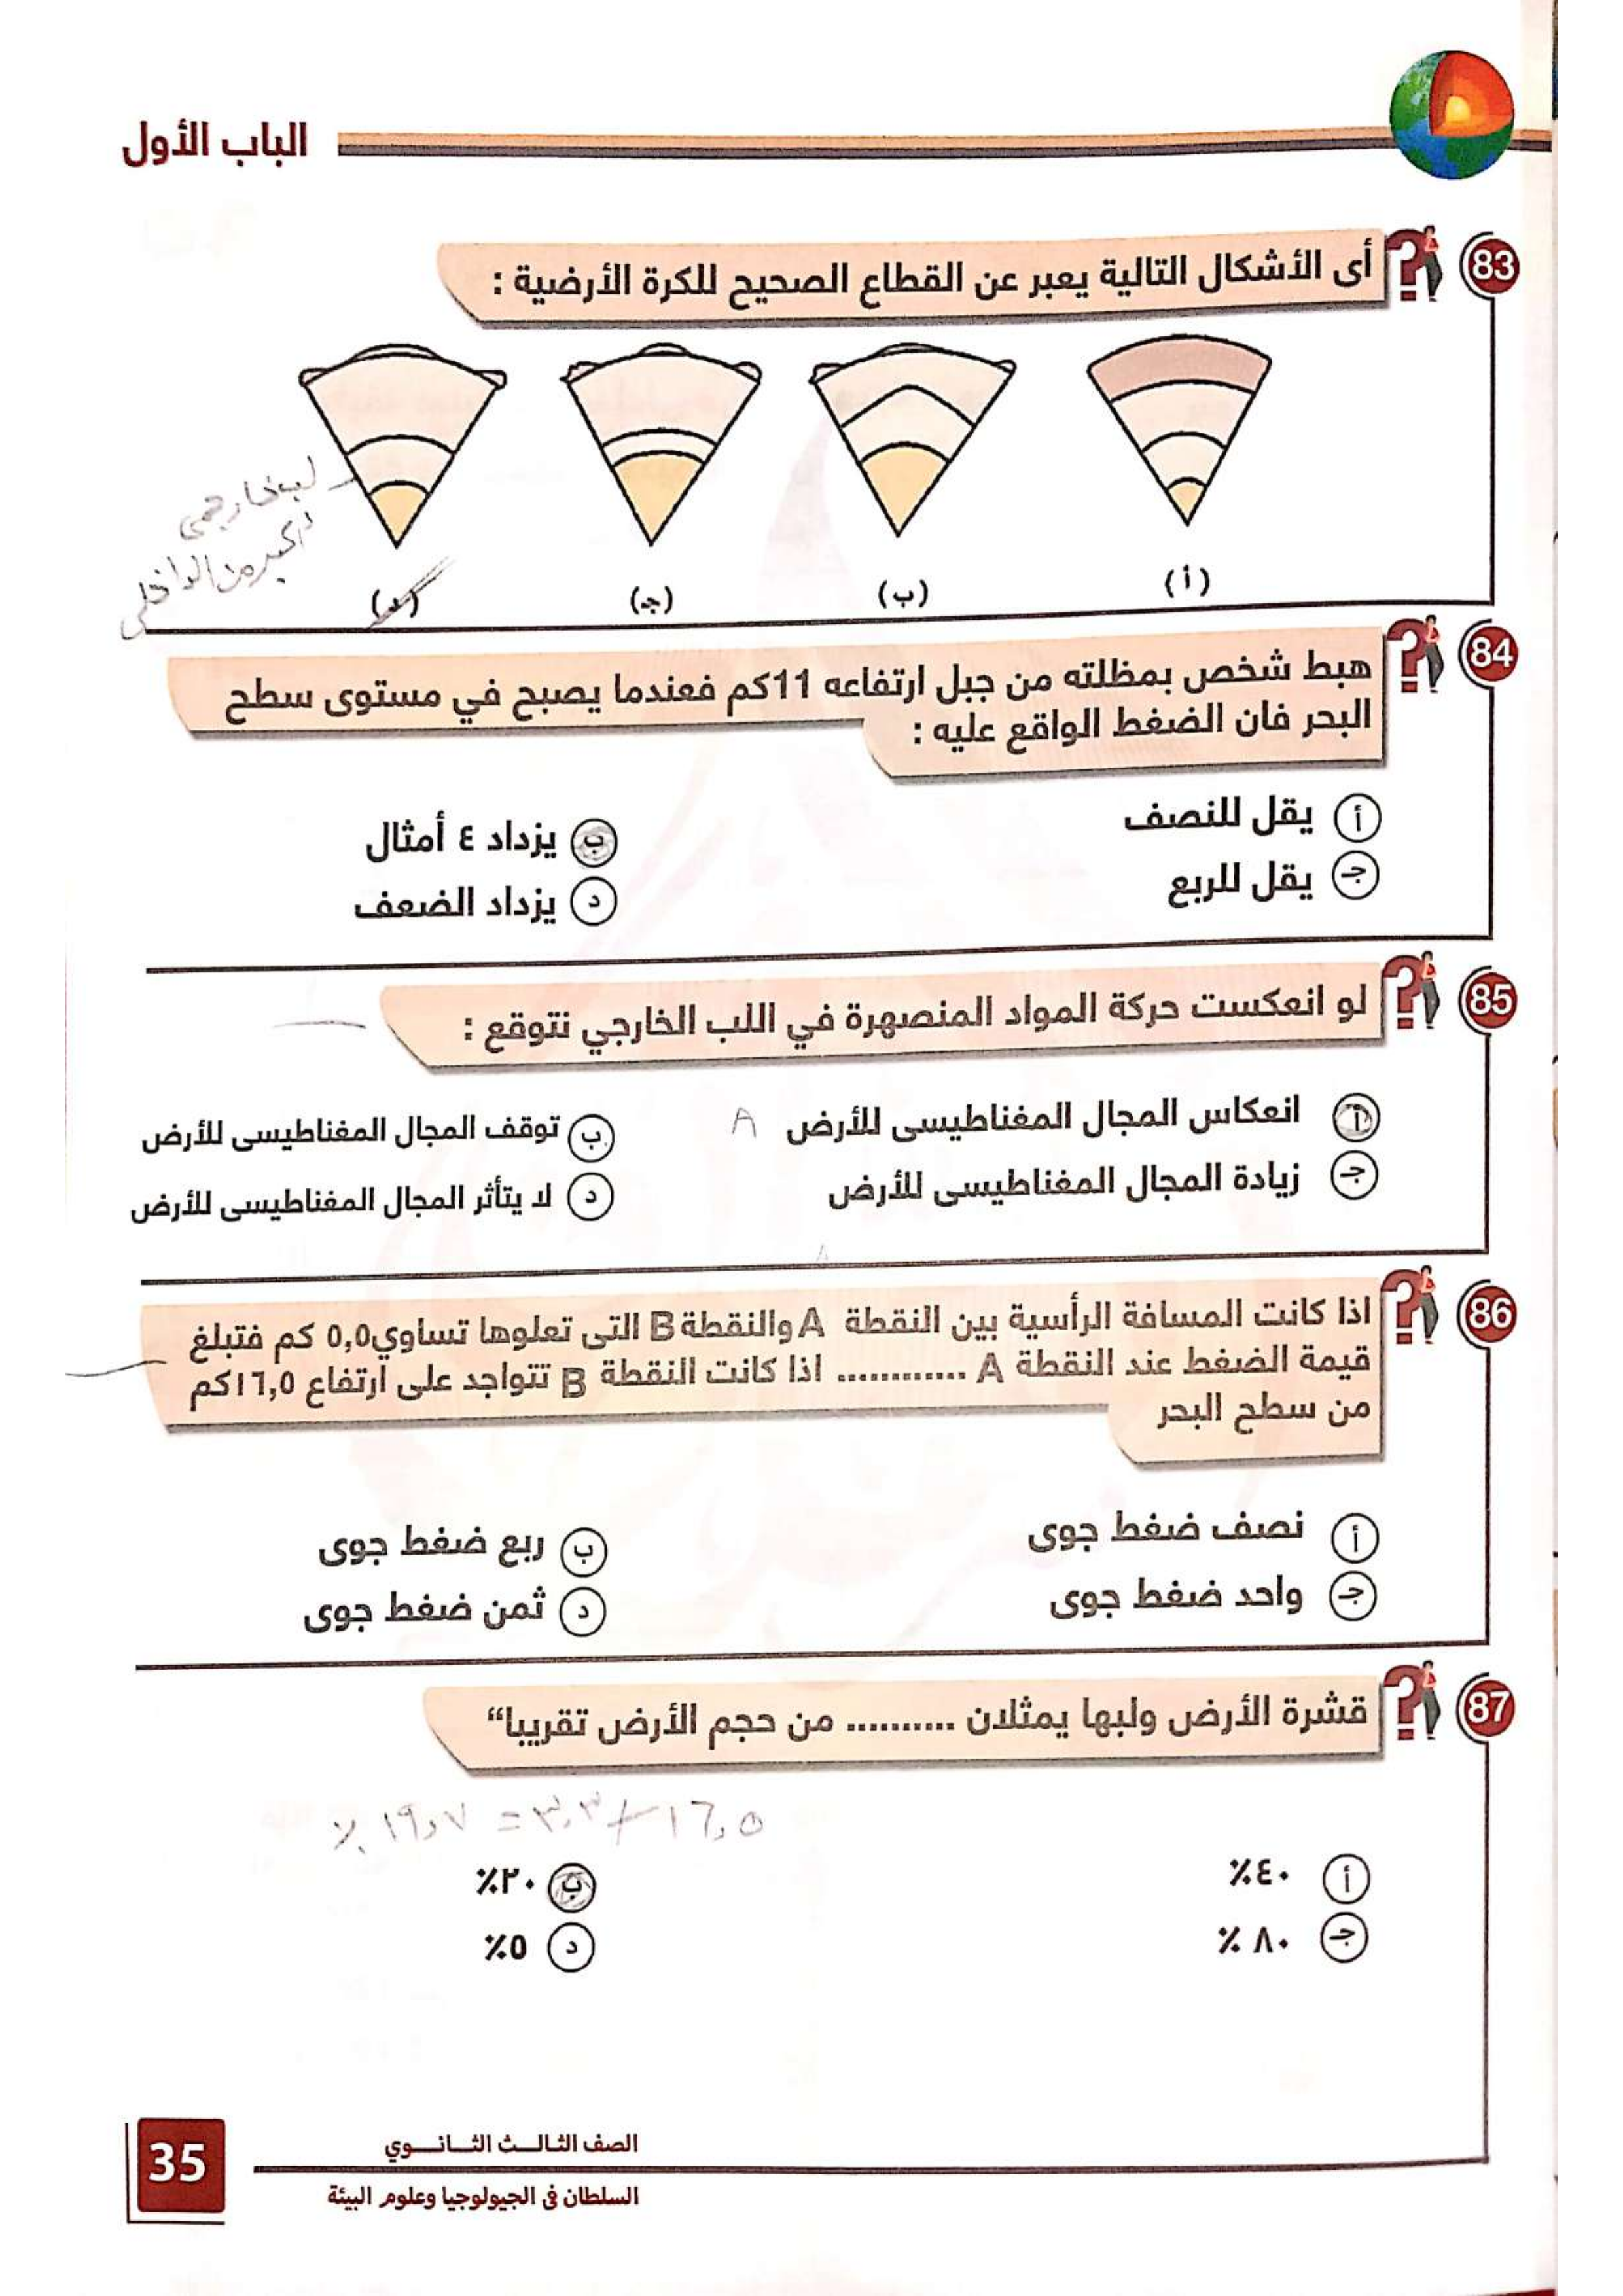 الباب الأول
83 أى الأشكال التالية يعبر عن القطاع الصحيح للكرة الأرضية :
(أ) (ب) (جـ) (د)
لب خارجي
أكبر من الداخلى
84 هبط شخص بمظلته من جبل ارتفاعه 11كم فعندما يصبح في مستوى سطح
البحر فان الضغط الواقع عليه :
أ يقل للنصف ب يزداد ٤ أمثال
جـ يقل للربع د يزداد الضعف
85 لو انعكست حركة المواد المنصهرة في اللب الخارجي نتوقع :
أ انعكاس المجال المغناطيسى للأرض A ب توقف المجال المغناطيسى للأرض
جـ زيادة المجال المغناطيسى للأرض د لا يتأثر المجال المغناطيسى للأرض
86 اذا كانت المسافة الرأسية بين النقطة A والنقطة B التى تعلوها تساوي ٥,٥ كم فتبلغ
قيمة الضغط عند النقطة A ............ اذا كانت النقطة B تتواجد على ارتفاع ١٦,٥كم
من سطح البحر
أ نصف ضغط جوى ب ربع ضغط جوى
جـ واحد ضغط جوى د ثمن ضغط جوى
87 قشرة الأرض ولبها يمثلان .......... من حجم الأرض تقريبا“
١٦,٥ + ٣,٢ = ١٩,٧ ٪
أ ٤٠٪ ب ٢٠٪
جـ ٨٠ ٪ د ٥٪
الصف الثالث الثانوي
35
السلطان في الجيولوجيا وعلوم البيئة